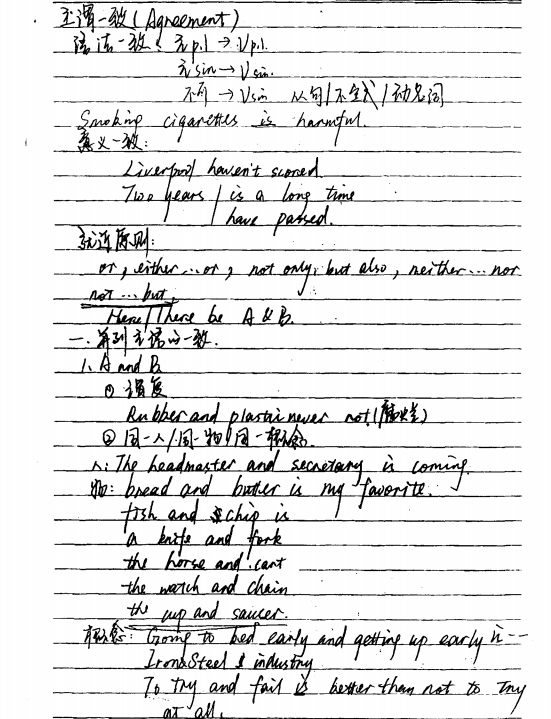 主谓一致(Agreement)
语法一致: 主pl → Vpl.
主sin → Vsin.
不可 → Vsin 从句/不定式/动名词
Smoking cigarettes is harmful.
意义一致:
Liverpool haven't scored
Two years / is a long time
have passed.
就近原则:
or, either...or, not only, but also, neither...nor
not...but
Here/There be A & B.
一.并列主语的一致.
1. A and B
① 谓复
Rubber and plastic never rot.(腐烂)
② 同一人/同一物/同一概念.
人: The headmaster and secretary is coming.
物: bread and butter is my favorite.
fish and chip is
a knife and fork
the horse and cart
the watch and chain
the cup and saucer.
概念: Going to bed early and getting up early is --
Iron & Steel industry
To try and fail is better than not to try
at all.